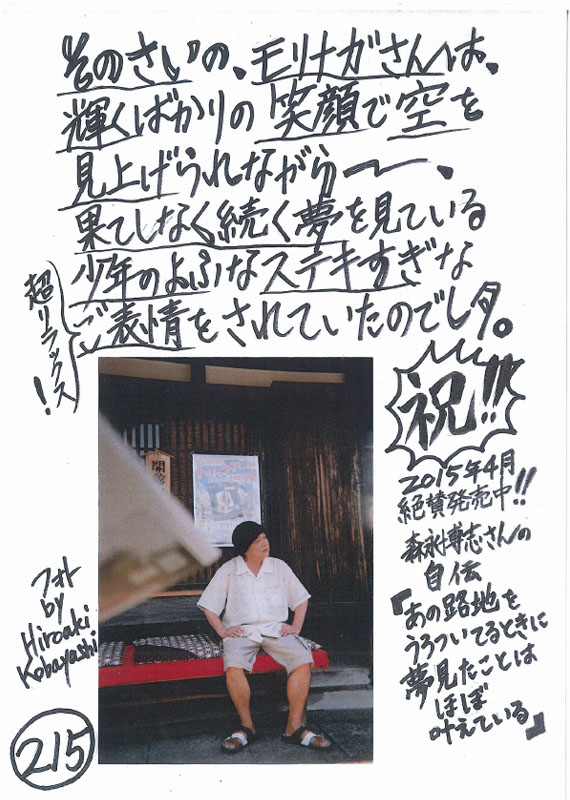 そのさいの、モリナガさんは、
輝くばかりの笑顔で空を
見上げられながら〜、
果てしなく続く夢を見ている
少年のよぷなステキすぎな
ご表情をされていたのでし夕。
超リラックス!
祝!!
2015年4月
絶賛発売中!!
森永博志さんの
自伝
『あの路地を
うろついてるときに
夢見たことは
ほぼ
叶えている』
フォト
by
Hiroaki
Kobayashi
215